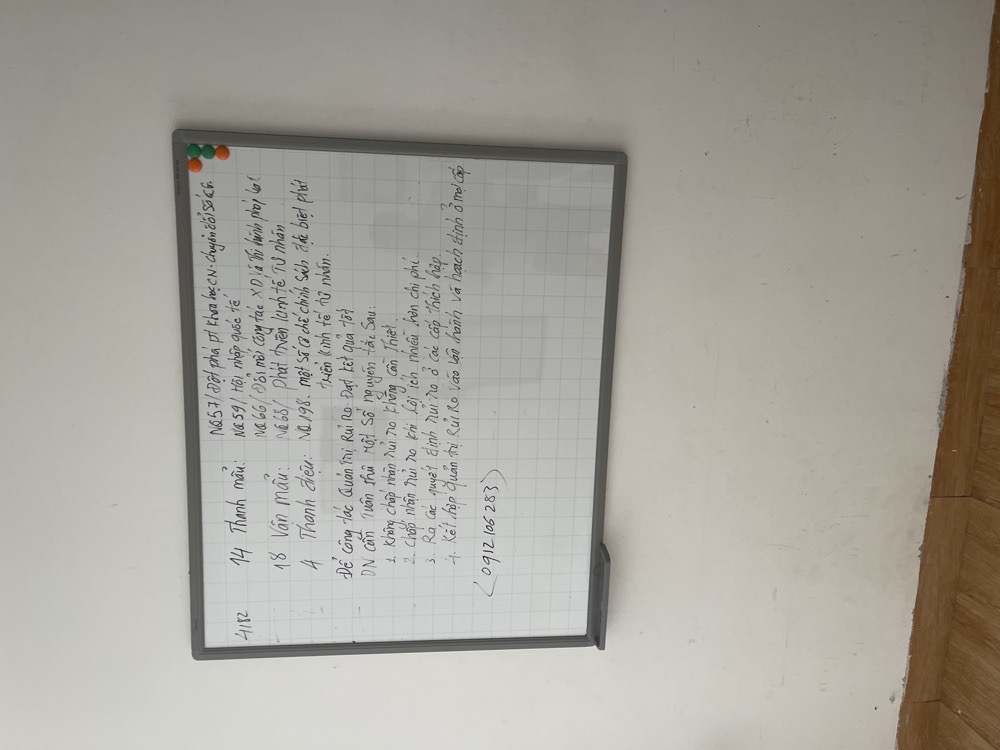 NQ57/ Đột phá pt khoa học CN - chuyển đổi số QG
4182 14 Thanh mẫu: NQ59/ Hội nhập quốc tế
NQ66/ Đổi mới công tác XD và Thi hành pháp luật
18 Vần mẫu: NQ68/ Phát triển kinh tế Tư nhân
4 Thanh điệu: NQ198. một số cơ chế chính sách đặc biệt phát
triển kinh tế tư nhân.
Để công tác Quản Trị Rủi Ro Đạt kết quả tốt
DN cần Tuân thủ một số nguyên tắc sau:
1. Không chấp nhận rủi ro không cần Thiết
2. Chấp nhận rủi ro khi lợi ích nhiều hơn chi phí
3. Ra các quyết định rủi ro ở các cấp thích hợp
4. Kết hợp Quản trị Rủi Ro vào vận hành và hoạch định ở mọi cấp
(0912106283)